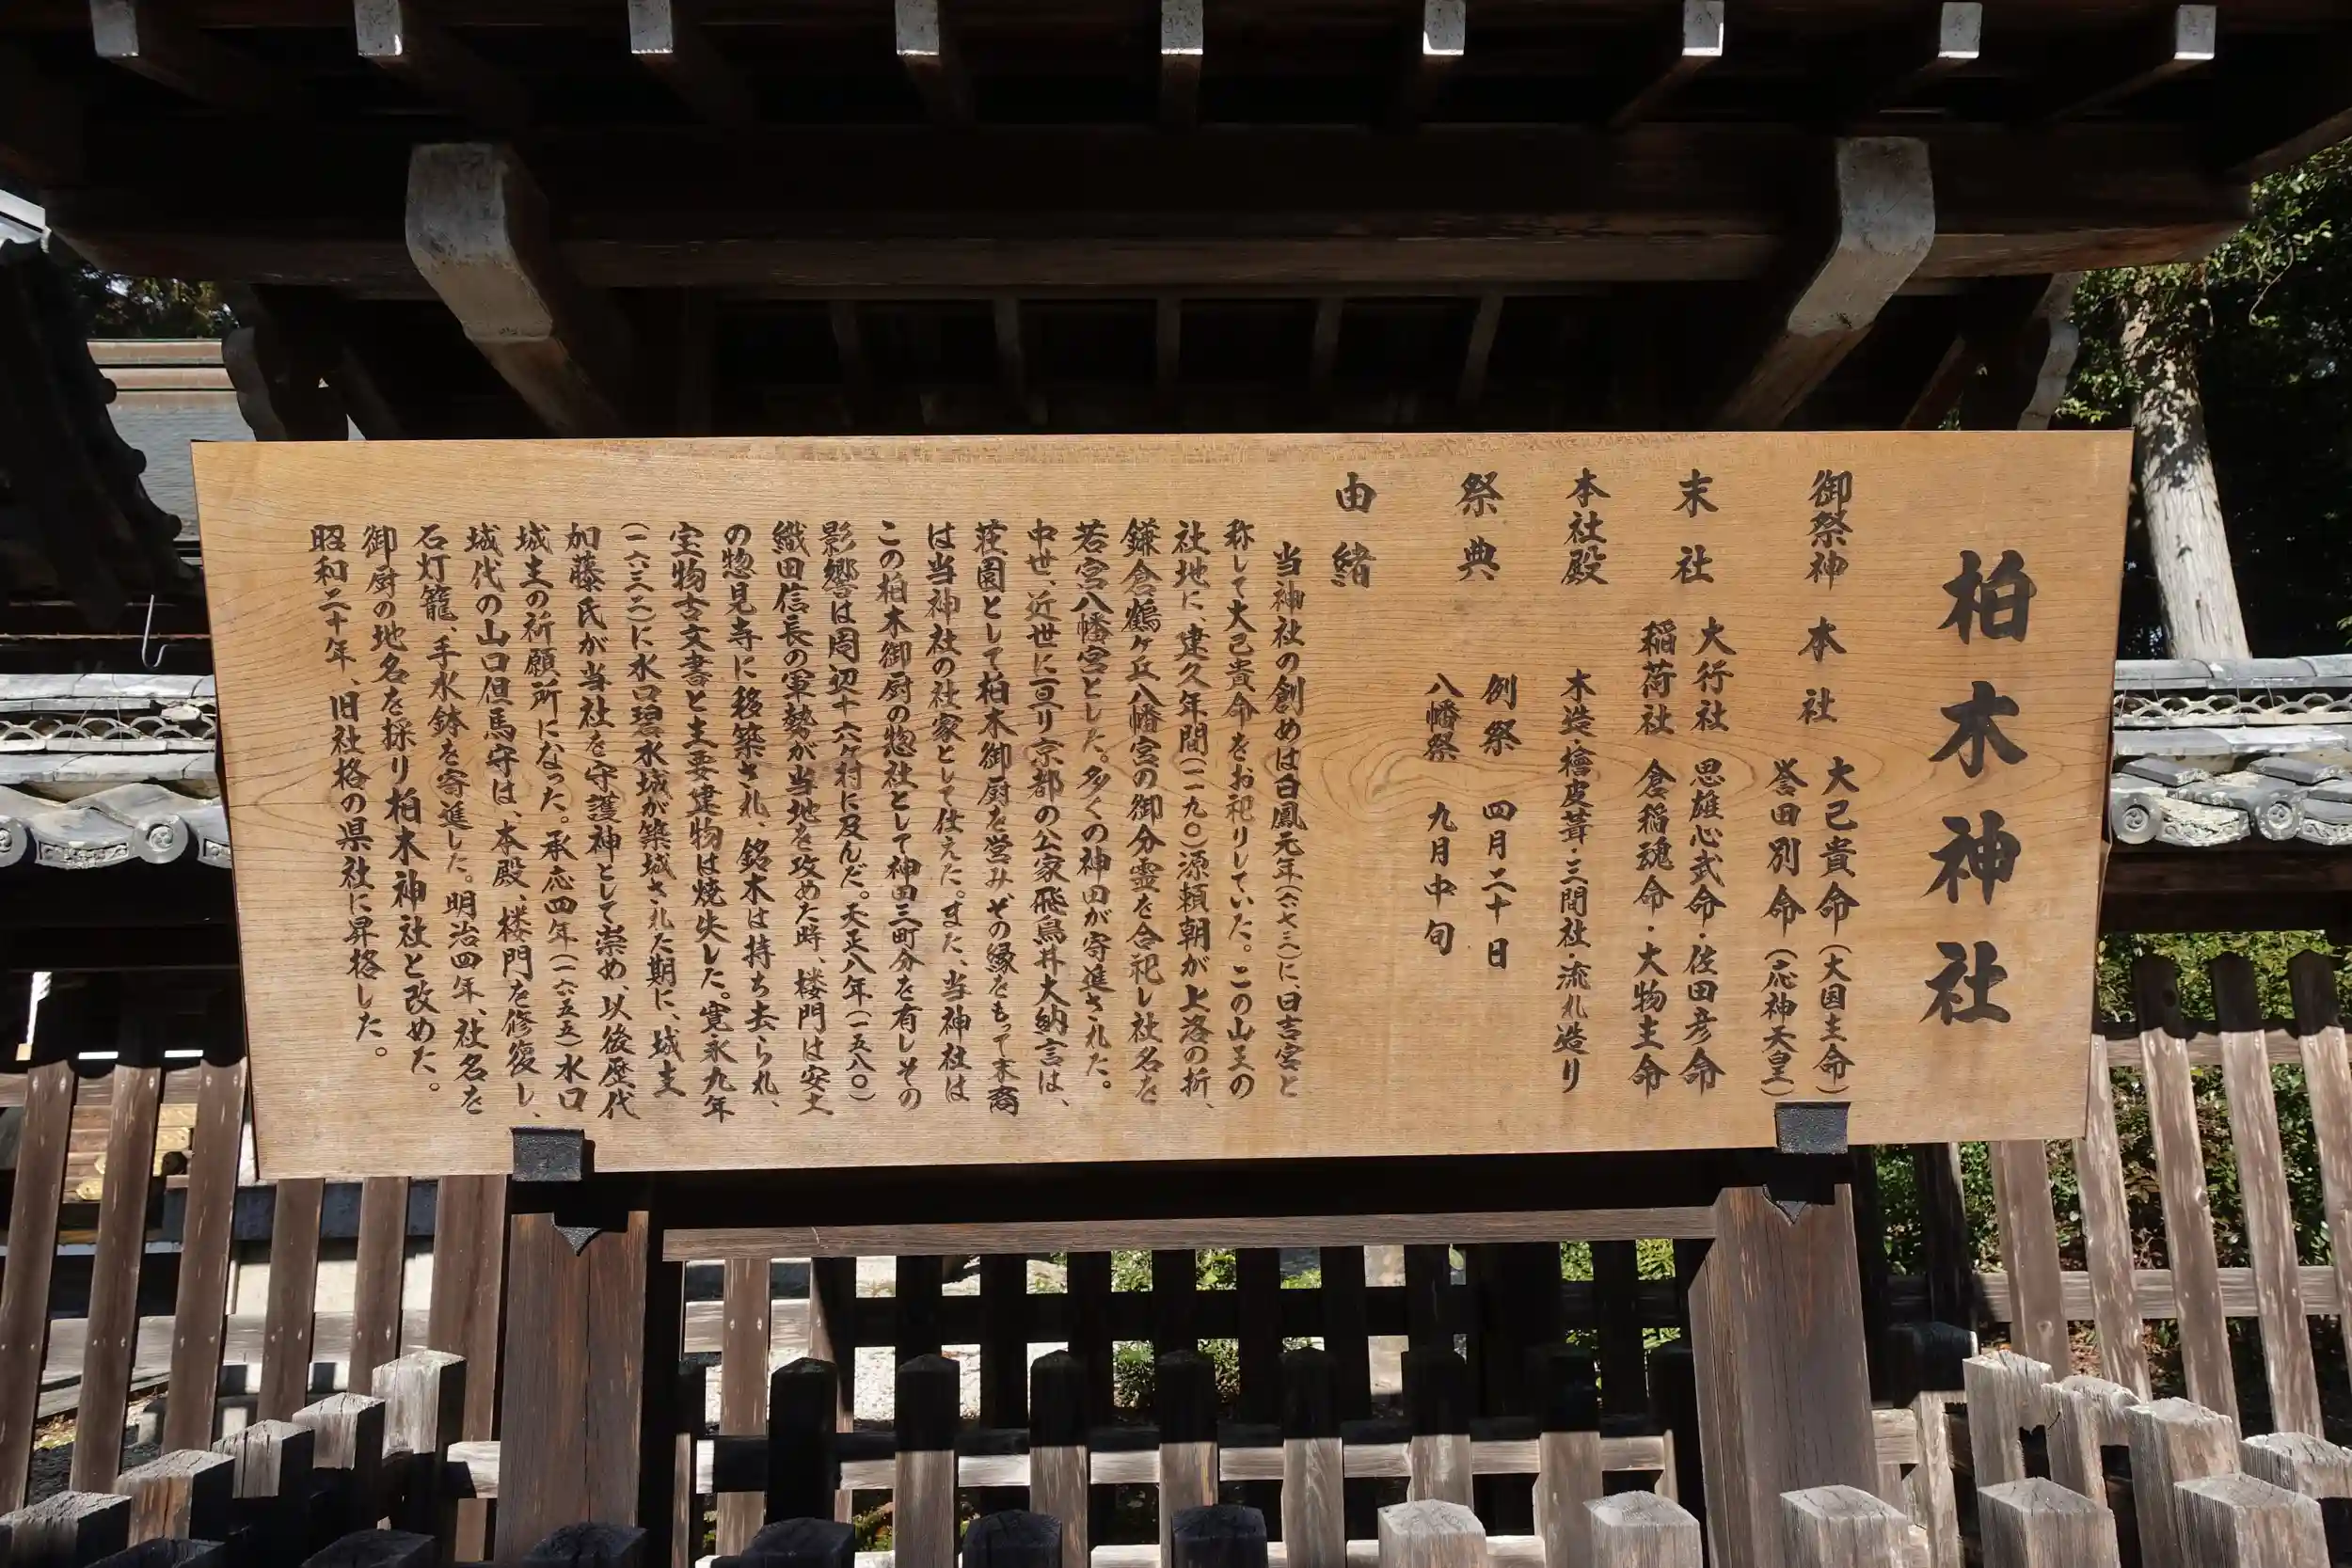 柏木神社
御祭神 本社 大己貴命(大国主命)
誉田別命(応神天皇)
末社 大行社 思雄心武命・佐田彦命
稲荷社 倉稲魂命・大物主命
本社殿 木造檜皮葺・三間社・流れ造り
祭典 例祭 四月二十日
八幡祭 九月中旬
由緒
当神社の創めは白鳳元年(六七三)に、日吉宮と
称して大己貴命をお祀りしていた。この山王の
社地に、建久年間(一一九〇)源頼朝が上洛の折、
鎌倉鶴ヶ丘八幡宮の御分霊を合祀し社名を
若宮八幡宮とした。多くの神田が寄進された。
中世、近世に亘り京都の公家飛鳥井大納言は、
荘園として柏木御厨を営み、その縁をもって末裔
は当神社の社家として仕えた。また、当神社は
この柏木御厨の惣社として神田三町分を有しその
影響は周辺十六ヶ村に及んだ。天正八年(一五八〇)
織田信長の軍勢が当地を攻めた時、楼門は安土
の惣見寺に移築され、銘木は持ち去られ、
宝物古文書と主要建物は焼失した。寛永九年
(一六三二)に水口碧水城が築城された期に、城主
加藤氏が当社を守護神として崇め、以後歴代
城主の祈願所になった。承応四年(一六五五)水口
城代の山口但馬守は、本殿、楼門を修復し、
石灯籠、手水鉢を寄進した。明治四年、社名を
御厨の地名を採り柏木神社と改めた。
昭和二十年、旧社格の県社に昇格した。